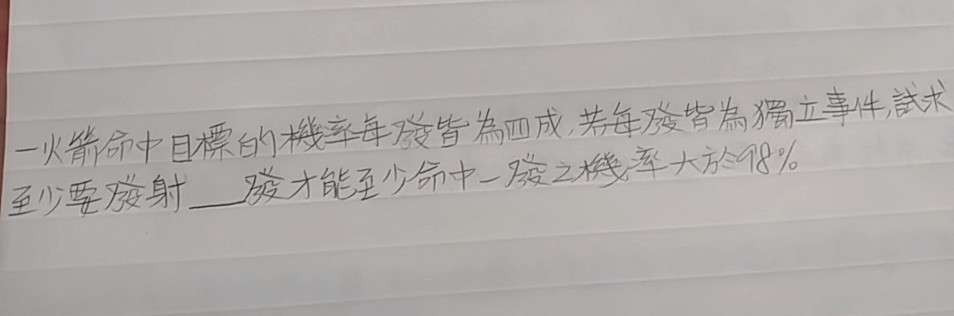 一火箭命中目標的機率每發皆為四成,若每發皆為獨立事件,試求
至少要發射___發才能至少命中一發之機率大於98%